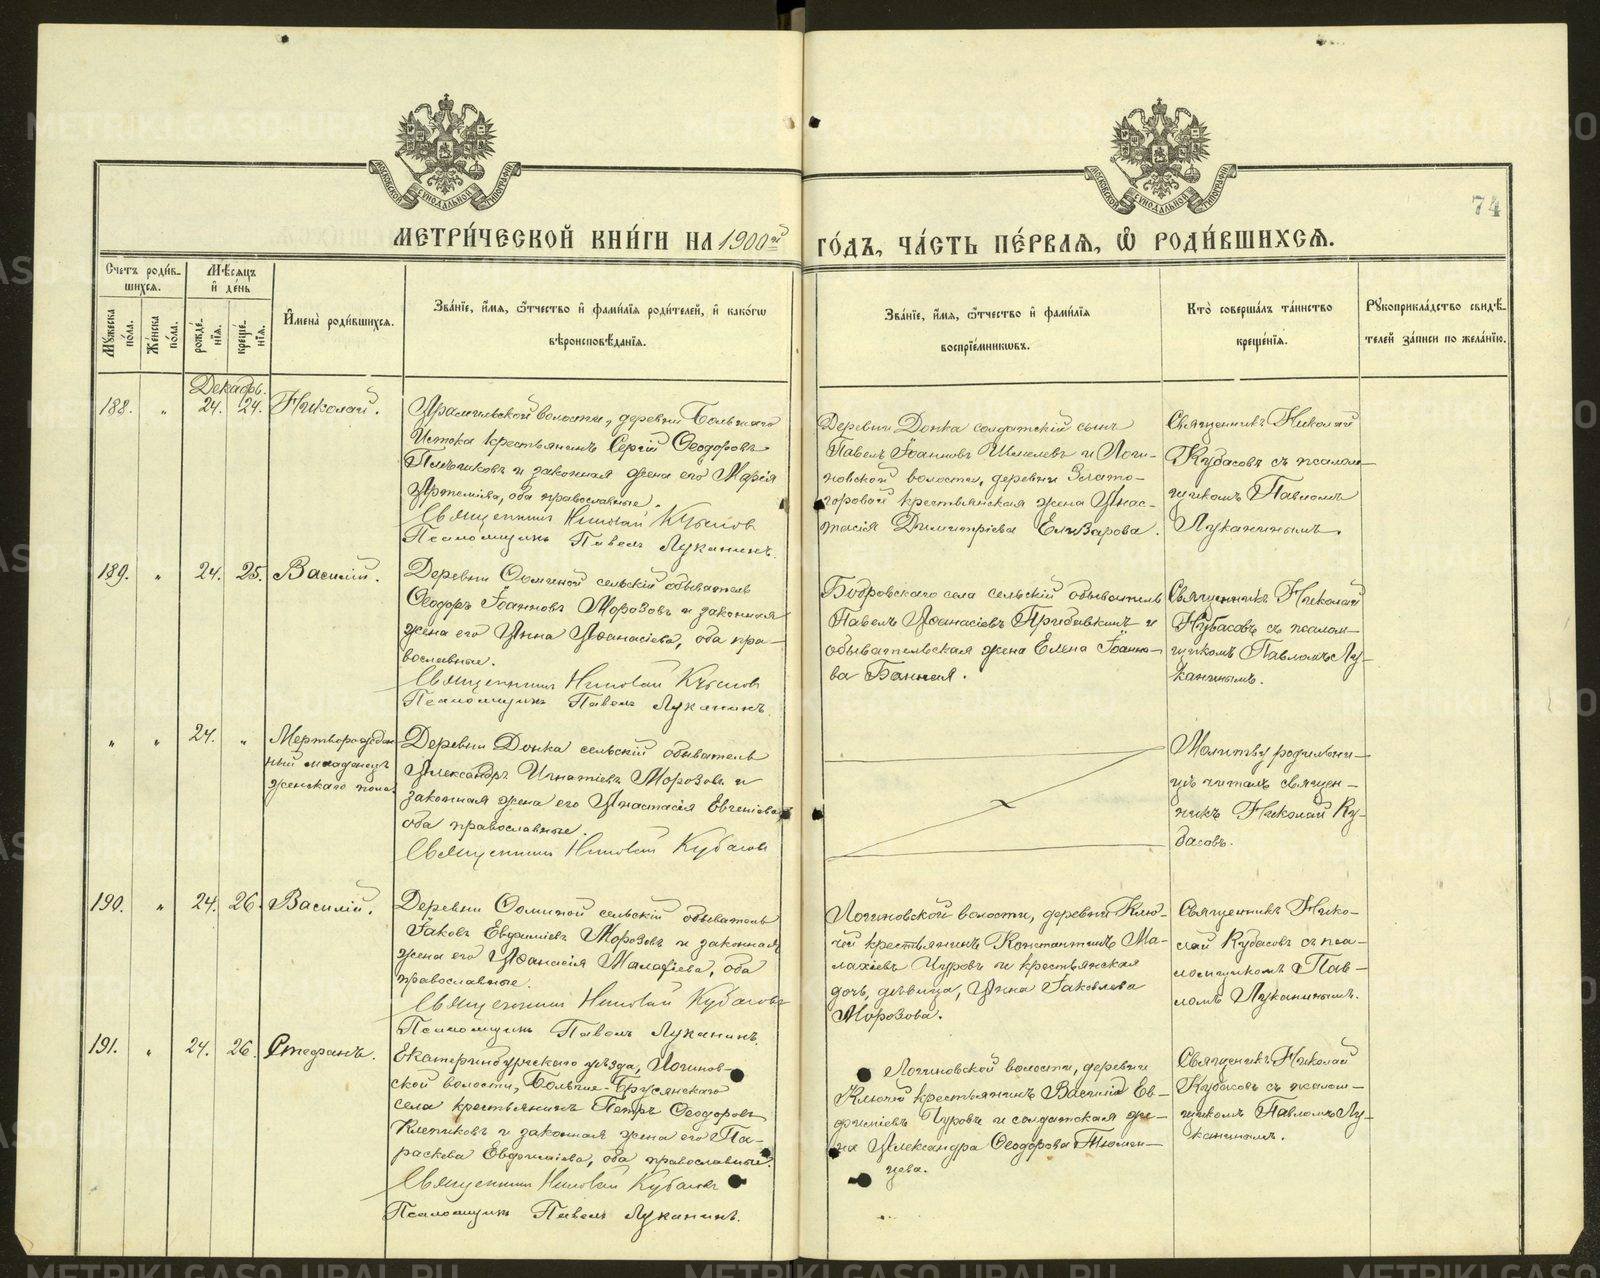 МЕТРИ́ЧЕСКОЙ КНИ́ГИ НА 1900й
ГО́ДЪ, ЧА́СТЬ ПЕ́РВАЯ, Ѽ РОДИ́ВШИХСЯ.
74
МОСКОВСКОЙ СѴНОДАЛЬНОЙ ТИПОГРАФІИ
МОСКОВСКОЙ СѴНОДАЛЬНОЙ ТИПОГРАФІИ
Счетъ роди́в-
шихся.
Мѣсяцъ
и҆ де́нь
Мꙋ́жеска
по́ла.
Же́нска
по́ла.
рожде́-
нїя.
креще́-
нїя.
И҆мена̀ роди́вшихся.
Зва́нїе, и҆́мя, ѻ҆́тчество и҆ фами́лїя роди́телей, и҆ како́гѡ
вѣроисповѣ́данїя.
Зва́нїе, и҆́мя, ѻ҆́тчество и҆ фами́лїя
воспрїе́мникѡвъ.
Кто̀ соверша́лъ та́инство
креще́нїя.
Рꙋкоприкла́дство свидѣ́-
телей за́писи по жела́нїю.
Декабрь.
188. " 24. 24. Николай.
Арамильской волости, деревни Большаго
Истока крестьянинъ Сергій Ѳеодоровъ
и законная жена его Марія
Артеміева, оба православные.
Священникъ Николай Кубасовъ
Псаломщикъ Павелъ Луканинъ.
Деревни Донка солдатскій сынъ
Павелъ Іоанновъ Шмелевъ и Логи-
новской волости, деревни Злато-
горовой крестьянская жена Анас-
тасія Димитріева Елизарова.
Священникъ Николай
Кубасовъ съ псалом-
щикомъ Павломъ
Луканинымъ.
189. " 24. 25. Василій.
Деревни Ѳоминой сельскій обыватель
Ѳеодоръ Іоанновъ Морозовъ и законная
жена его Анна Аѳанасіева, оба пра-
вославные.
Священникъ Николай Кубасовъ
Псаломщикъ Павелъ Луканинъ.
Бобровскаго села сельскій обыватель
Павелъ Аѳанасіевъ Прибавкинъ и
обывательская жена Елена Іоанно-
ва Банная.
Священникъ Николай
Кубасовъ съ псалом-
щикомъ Павломъ Лу-
канинымъ.
" " 24. " Мертворожден-
ный младенецъ
женскаго пола.
Деревни Донка сельскій обыватель
Александръ Игнатіевъ Морозовъ и
законная жена его Анастасія Евгеніева,
оба православные.
Священникъ Николай Кубасовъ
Молитву родильни-
цѣ читалъ священ-
никъ Николай Ку-
басовъ.
190. " 24. 26. Василій.
Деревни Ѳоминой сельскій обыватель
Іаковъ Евфиміевъ Морозовъ и законная
жена его Аѳанасія Малафіева, оба
православные.
Священникъ Николай Кубасовъ
Псаломщикъ Павелъ Луканинъ.
Логиновской волости, деревни Клю-
чей крестьянинъ Константинъ Ма-
лахіевъ Чуровъ и крестьянская
дочь, дѣвица, Анна Іаковлева
Морозова.
Священникъ Нико-
лай Кубасовъ съ пса-
ломщикомъ Пав-
ломъ Луканинымъ.
191. " 24. 26. Стефанъ.
Екатеринбургскаго уѣзда, Логинов-
ской волости, Больше-Брусянскаго
села крестьянинъ Петръ Ѳеодоровъ
Клепиковъ и законная жена его Па-
раскева Евфиміева, оба православные.
Священникъ Николай Кубасовъ
Псаломщикъ Павелъ Луканинъ.
Логиновской волости, деревни
Ключей крестьянинъ Василій Ев-
фиміевъ Чуровъ и солдатская же-
на Александра Ѳеодорова Тюмен-
цева.
Священникъ Николай
Кубасовъ съ псалом-
щикомъ Павломъ Лу-
канинымъ.
METRIKI.GASO-URAL.RU